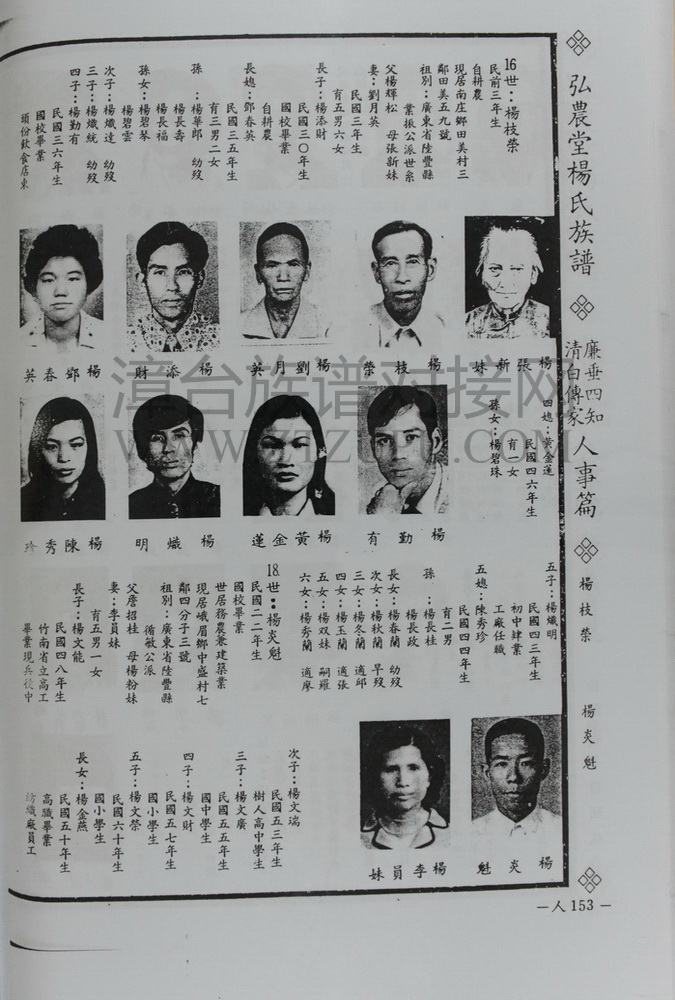 弘農堂楊氏族譜
廉垂四知
清白傳家
人事篇
楊枝榮
楊炎魁
16世：楊枝榮
民前三年生
自耕農
現居南庄鄉田美村三
鄰田美五九號
祖別：廣東省陸豐縣
業振公派世系
父楊輝松　母張新妹
妻：劉月英
民國三年生
育五男六女
長子：楊添財
民國三〇年生
國校畢業
自耕農
長媳：鄧春英
民國三五年生
育三男二女
孫：楊華郎　幼歿
楊長壽
楊長福
孫女：楊碧琴
楊碧雲
次子：楊熾達　幼歿
三子：楊熾統　幼歿
四子：楊勤有
民國三六年生
國校畢業
頭份飲食店東
楊張新妹
楊枝榮
楊劉月英
楊添財
楊鄧春英
四媳：黃金蓮
民國四六年生
育一女
孫女：楊碧珠
楊勤有
楊黃金蓮
楊熾明
楊陳秀珍
五子：楊熾明
民國四三年生
初中肄業
工廠任職
五媳：陳秀珍
民國四四年生
育二男
孫：楊長桂
楊長政
長女：楊春蘭　幼歿
次女：楊秋蘭　早歿
三女：楊冬蘭　適邱
四女：楊玉蘭　適張
五女：楊双妹　嗣羅
六女：楊秀蘭　適廖
18世：楊炎魁
民國二二年生
國校畢業
世居務農兼建築業
現居峨眉鄉中盛村七
鄰四分子三號
祖別：廣東省陸豐縣
循敏公派
父詹招桂　母楊粉妹
妻：李員妹
育五男一女
長子：楊文能
民國四八年生
竹南省立高工
畢業現兵役中
次子：楊文瑞
民國五三年生
樹人高中學生
三子：楊文廣
民國五五年生
國中學生
四子：楊文財
民國五七年生
國小學生
五子：楊文榮
民國六十年生
國小學生
長女：楊金燕
民國五十年生
高職畢業
紡織廠員工
楊炎魁
楊李員妹
—人153—
漳台族谱对接网
WWW.ZTZUPU.COM